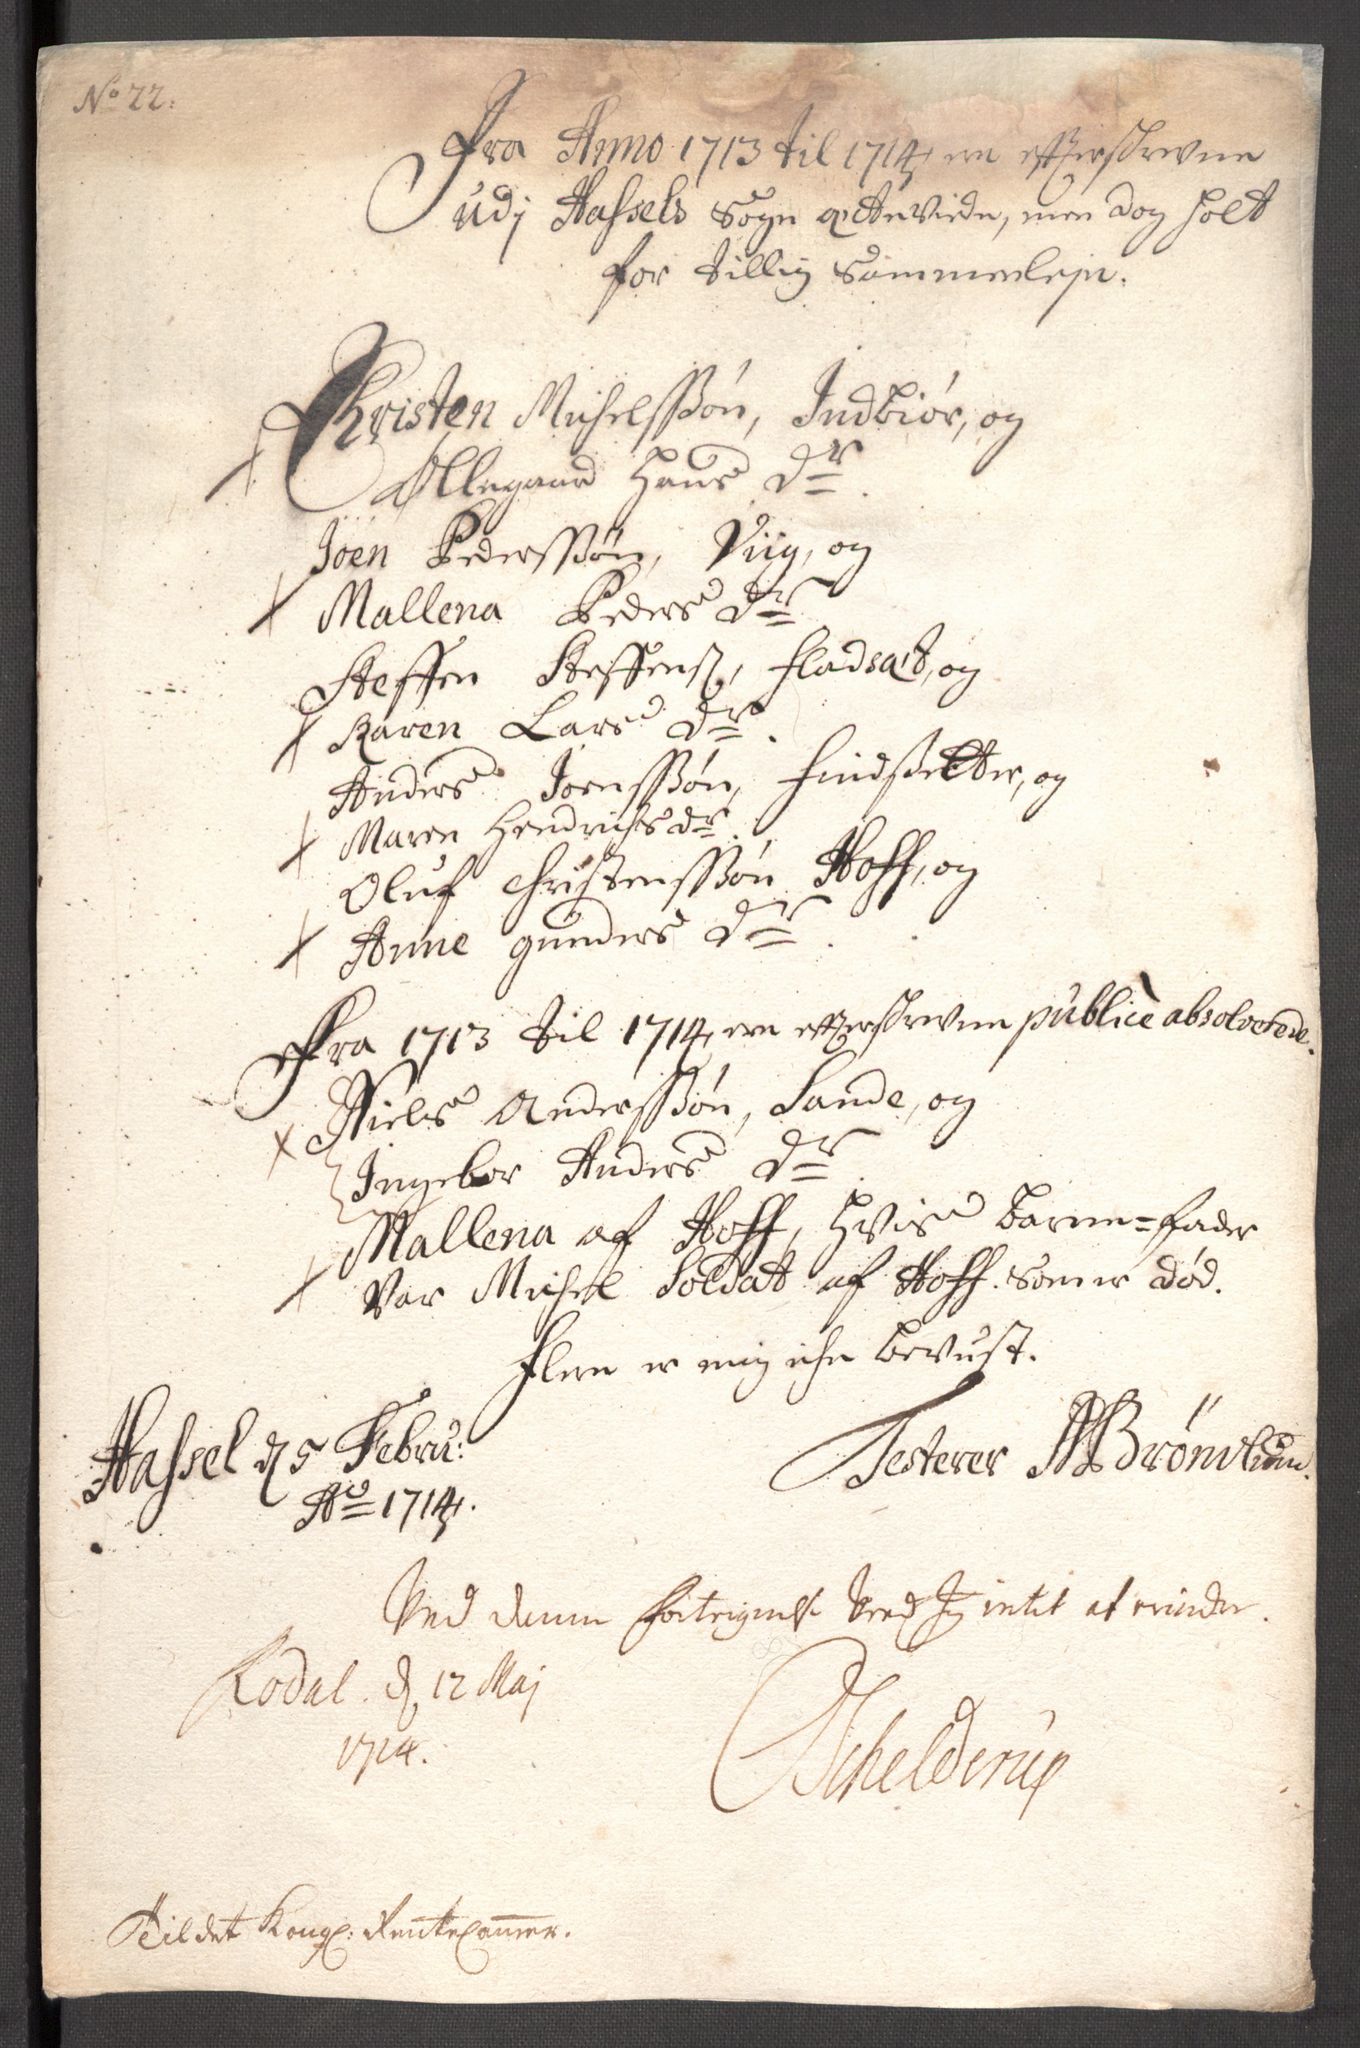 No 22:
Fra Anno 1713 til 1714, ere effterskrevne
udj Hassels Sogn ægteviede, men dog holt
for tillig Sammenleje.
Christen Michelssøn, Indbiør, og
Allegaard Hans Dr.
Joen Pederssøn, Viig, og
Mallena Peders Dr
Steffen Steffens, Fladsæt, og
Karen Lars Dr.
Anders Joenssøn, Findsætter, og
Maren Hendrichs dr.
Oluf Christenssøn Hoff, og
Anne Gunders Dr.
Fra 1713 til 1714, ere effterskrevne publicè absolverede.
Niels Anderssøn, Sande, og
Ingebor Anders Dr.
Mallena af Hoff, hvis barne=fader
Var Michel Soldat af Hoff. som er død.
Flere er mig iche bevust.
Hassel d 5 Febru:
Ao 1714.
Testerer Brønlund.
Ved denne fortegnelse veed Jeg intet at erindre.
Rodal. d. 12 Maj
1714.
Schelderup
Til det Kongl: Rente Camer.